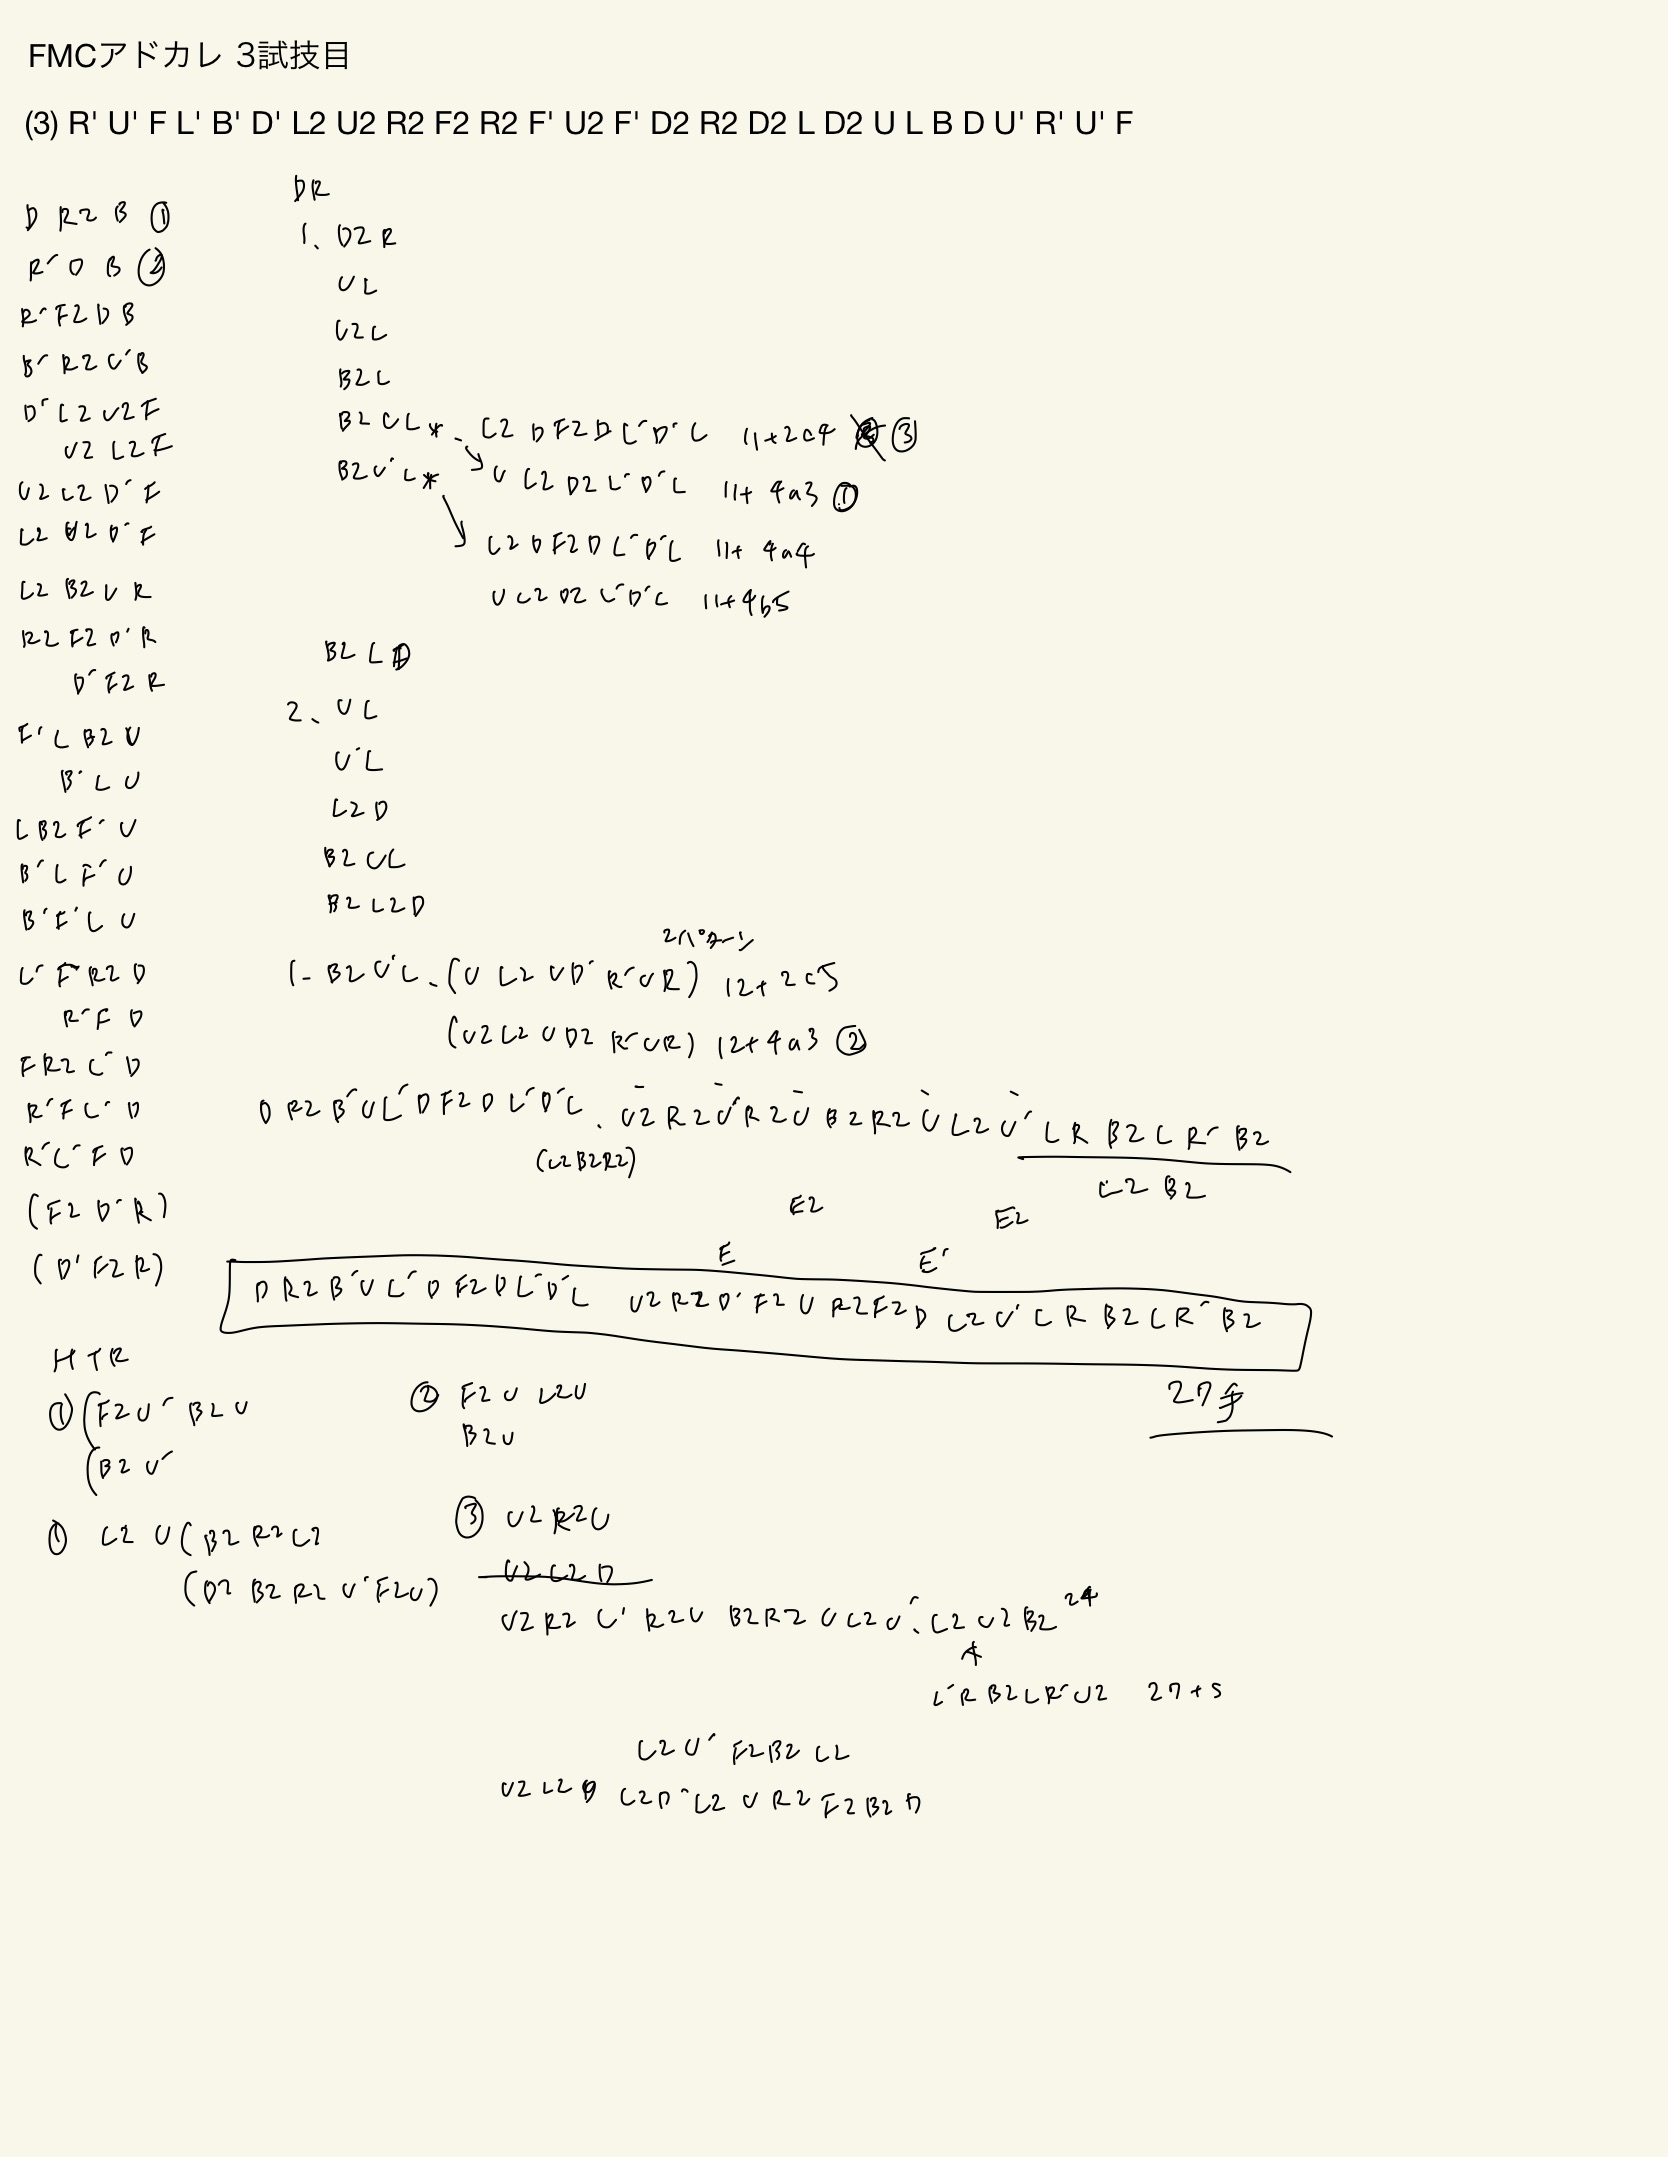 FMCアドカレ 3試技目
(3) R' U' F L' B' D' L2 U2 R2 F2 R2 F' U2 F' D2 R2 D2 L D2 U L B D U' R' U' F
D R2 B ①
R' D B ②
R' F2 D B
B' R2 U' B
D' L2 U2 F
U2 L2 F
U2 L2 D' F
L2 U2 D' F
L2 B2 U R
R2 F2 D' R
D' F2 R
F' L B2 U
B' L U
L B2 F' U
B' L F' U
B' F' L U
L' F R2 D
R' F D
F R2 L' D
R' F L' D
R' L' F D
(F2 D' R)
(D' F2 R)
DR
1、D2 R
U L
U2 L
B2 L
B2 U L * - L2 D F2 D L' D' L 11+2c4 ③
B2 U' L * U L2 D2 L' D' L 11+ 4a3 ①
L2 D F2 D L' D' L 11+ 4a4
U L2 D2 L' D' L 11+4b5
B2 L D
2、U L
U' L
L2 D
B2 U L
B2 L2 D
2パターン
1- B2 U' L - (U L2 U D' R' U R) 12+2c5
(U2 L2 U D2 R' U R) 12+4a3 ②
D R2 B' U L' D F2 D L' D' L . U2 R2 U' R2 U B2 R2 U L2 U' L R B2 L R' B2
(L2 B2 R2)
L2 B2
E2
E2
E
E'
D R2 B' U L' D F2 D L' D' L U2 R2 D' F2 U R2 F2 D L2 U' L R B2 L R' B2
27手
HTR
① (F2 U' B2 U
(B2 U'
② F2 U L2 U
B2 U
① L2 U (B2 R2 L2
(D2 B2 R2 U' F2 U)
③ U2 R2 U
U2 L2 D
U2 R2 U' R2 U B2 R2 U L2 U' . L2 U2 B2 24
L' R B2 L R' U2 27+5
L2 U' F2 B2 L2
U2 L2 D L2 D' L2 U R2 F2 B2 D